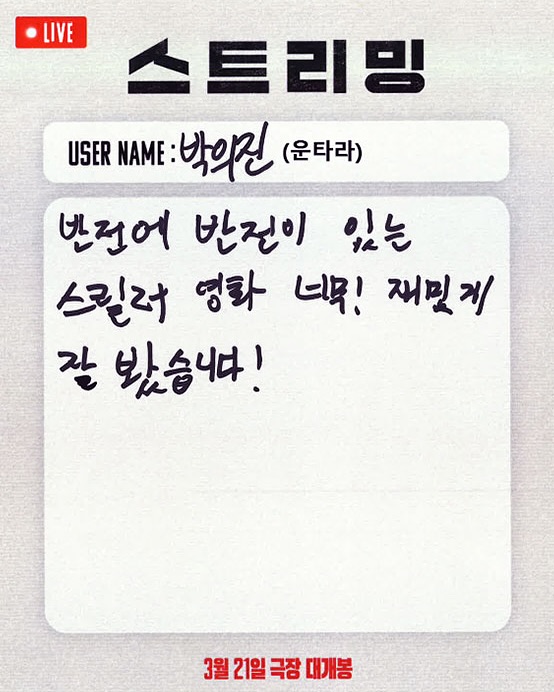 LIVE
스트리밍
USER NAME : 박의진 (운타라)
반전에 반전이 있는
스릴러 영화 너무! 재밌게
잘 봤습니다!
3월 21일 극장 대개봉